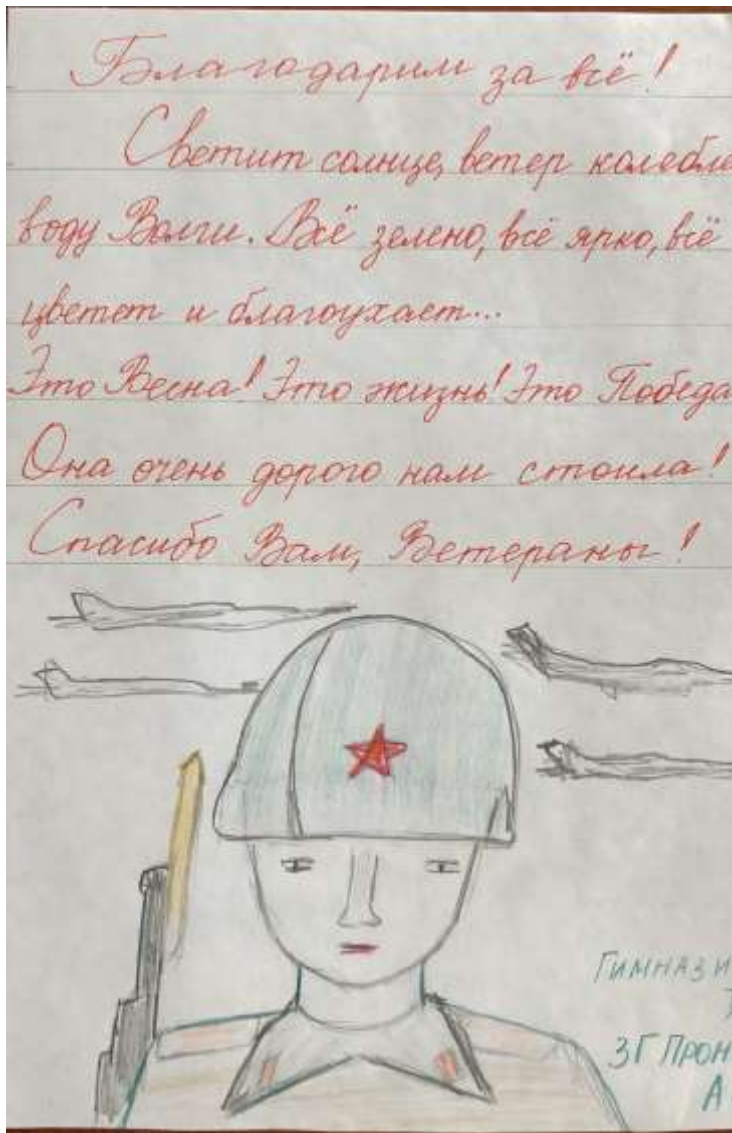 Благодарим за всё!
Светит солнце, ветер колебле
воду Волги. Всё зелено, всё ярко, всё
цветет и благоухает...
Это Весна! Это жизнь! Это Победа
Она очень дорого нам стоила!
Спасибо Вам, Ветераны!
Гимнази
3Г Прон
А